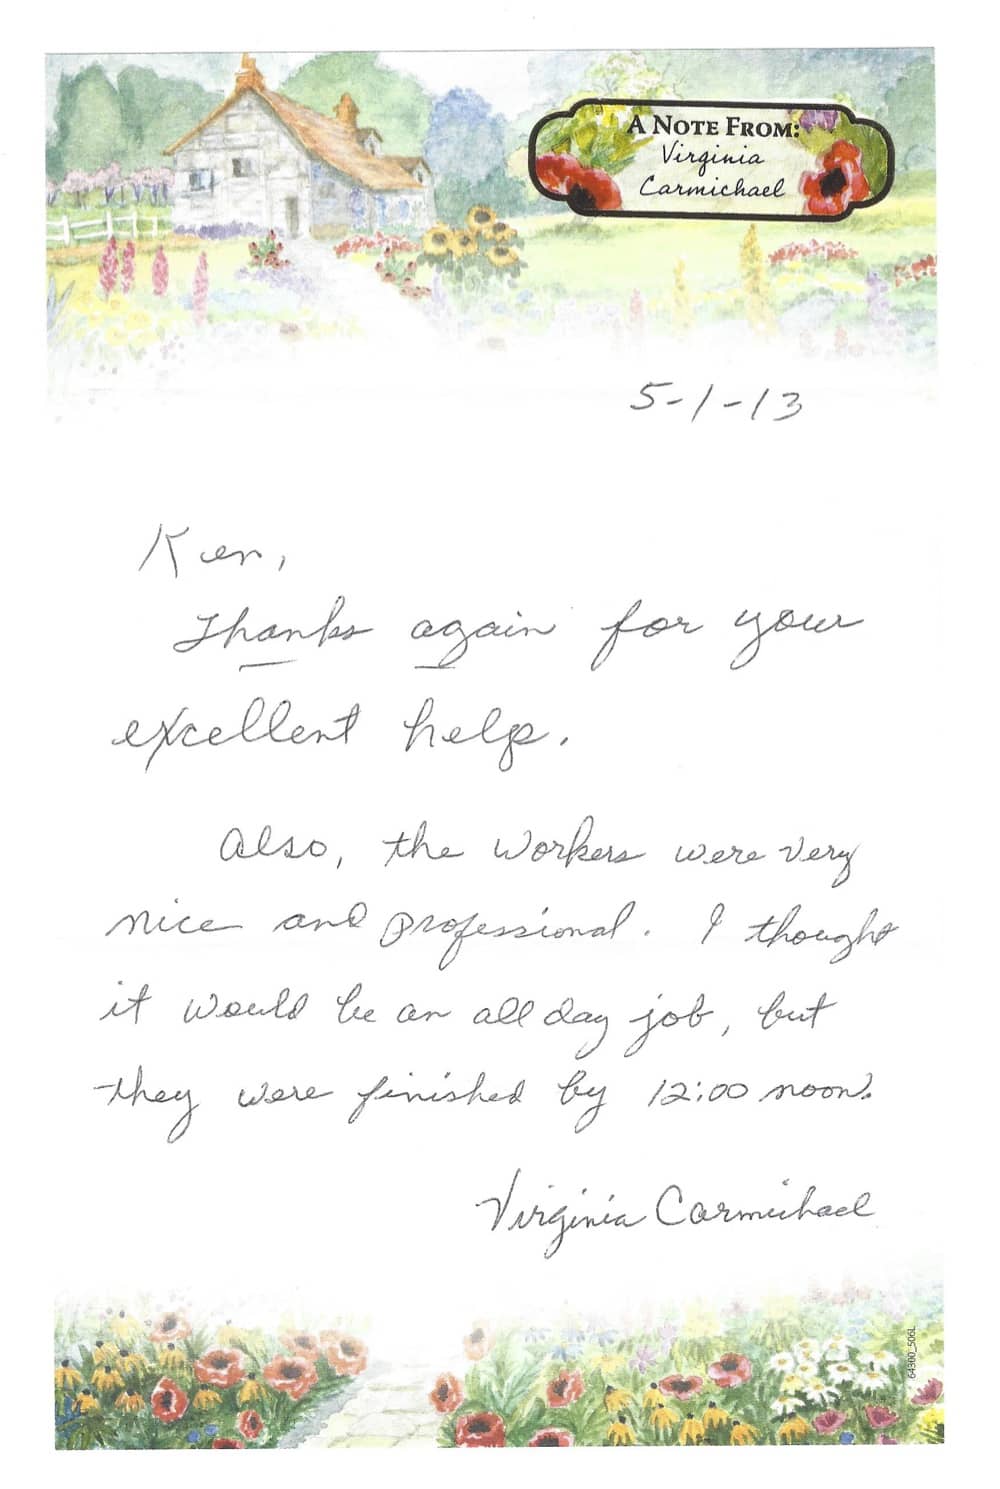 A NOTE FROM:
Virginia
Carmichael
5-1-13
Ken,
Thanks again for your
excellent help.
Also, the workers were very
nice and professional. I thought
it would be an all day job, but
they were finished by 12:00 noon.
Virginia Carmichael
64300_506L